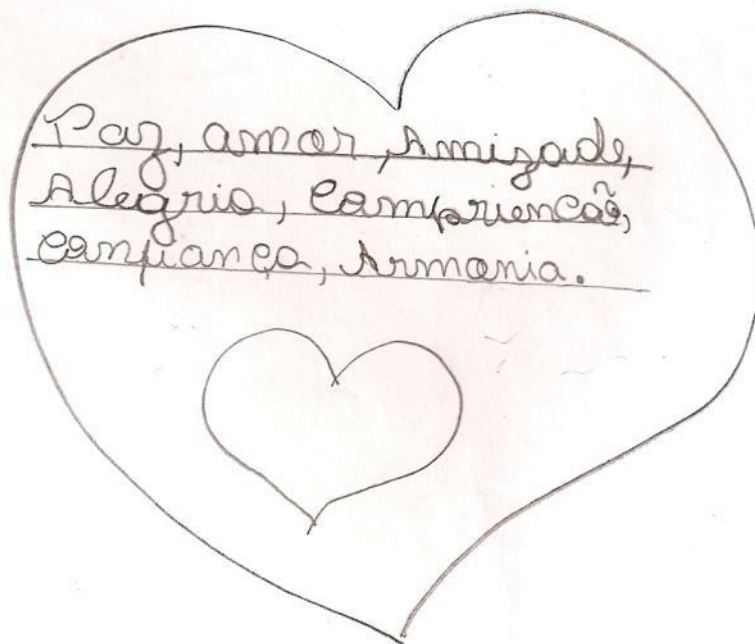 Paz, amor, Amizade,
Alegria, Compriencão,
Confiança, Armonia.